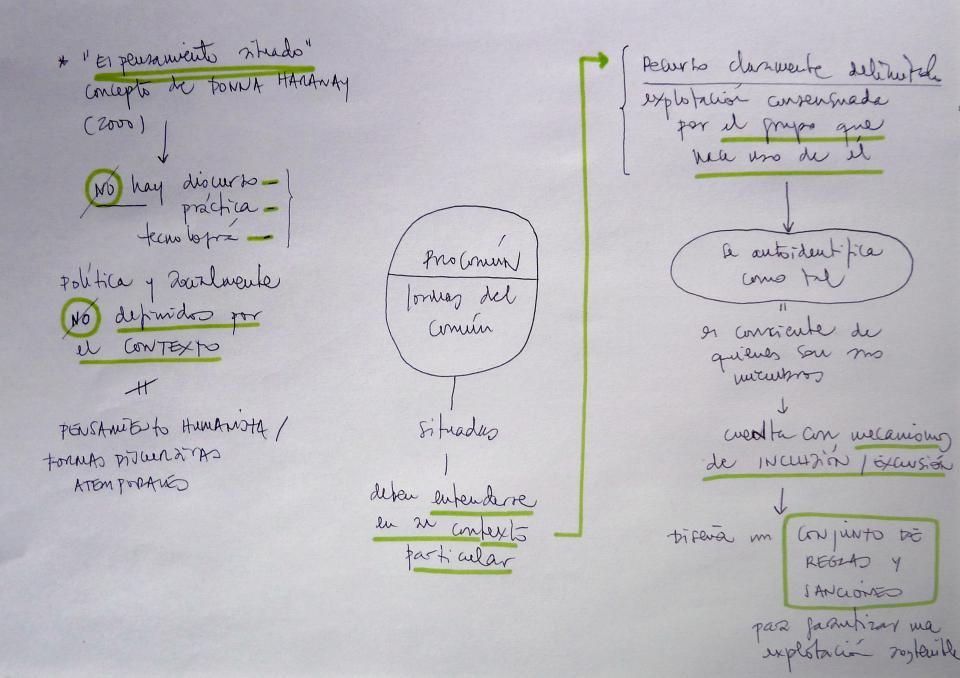 * "El pensamiento situado"
concepto de DONNA HARAWAY
(2000)
NO hay discurso
práctica
tecnología
política y socialmente
NO definidos por
el CONTEXTO
PENSAMIENTO HUMANISTA /
FORMAS DISCURSIVAS
ATEMPORALES
PROCOMÚN
formas del
común
situadas
deben entenderse
en su contexto
particular
Recurso claramente delimitado
explotación consensuada
por el grupo que
hace uso de él
Se autoidentifica
como tal
=
es consciente de
quienes son sus
miembros
cuenta con mecanismos
de INCLUSIÓN / EXCLUSIÓN
Diseña un CONJUNTO DE
REGLAS Y
SANCIONES
para garantizar una
explotación sostenible